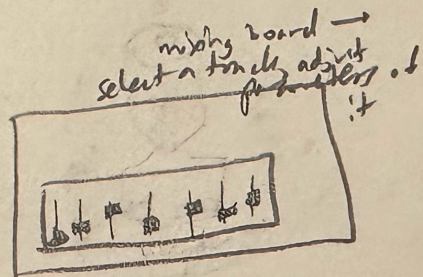 mixing board →
select a track, adjust
parameters of
it